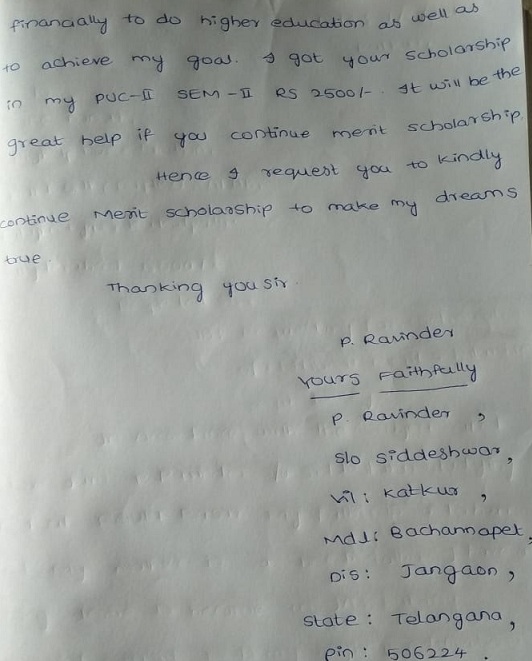 financially to do higher education as well as
to achieve my goal. I got your scholarship
in my PUC-II SEM-II RS 2500/- It will be the
great help if you continue merit scholarship.
Hence I request you to kindly
continue Merit scholarship to make my dreams
true.
Thanking you sir.
P. Ravinder
Yours Faithfully
P. Ravinder ,
S/o Siddeshwar,
Vil : Katkur ,
Mdl: Bachannapet,
Dis: Jangaon ,
State : Telangana,
Pin : 506224 .